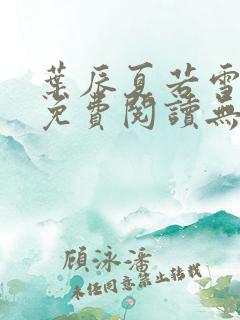 葉辰夏若雪
免費閱讀無
顧泳潘
未經同意禁止轉載